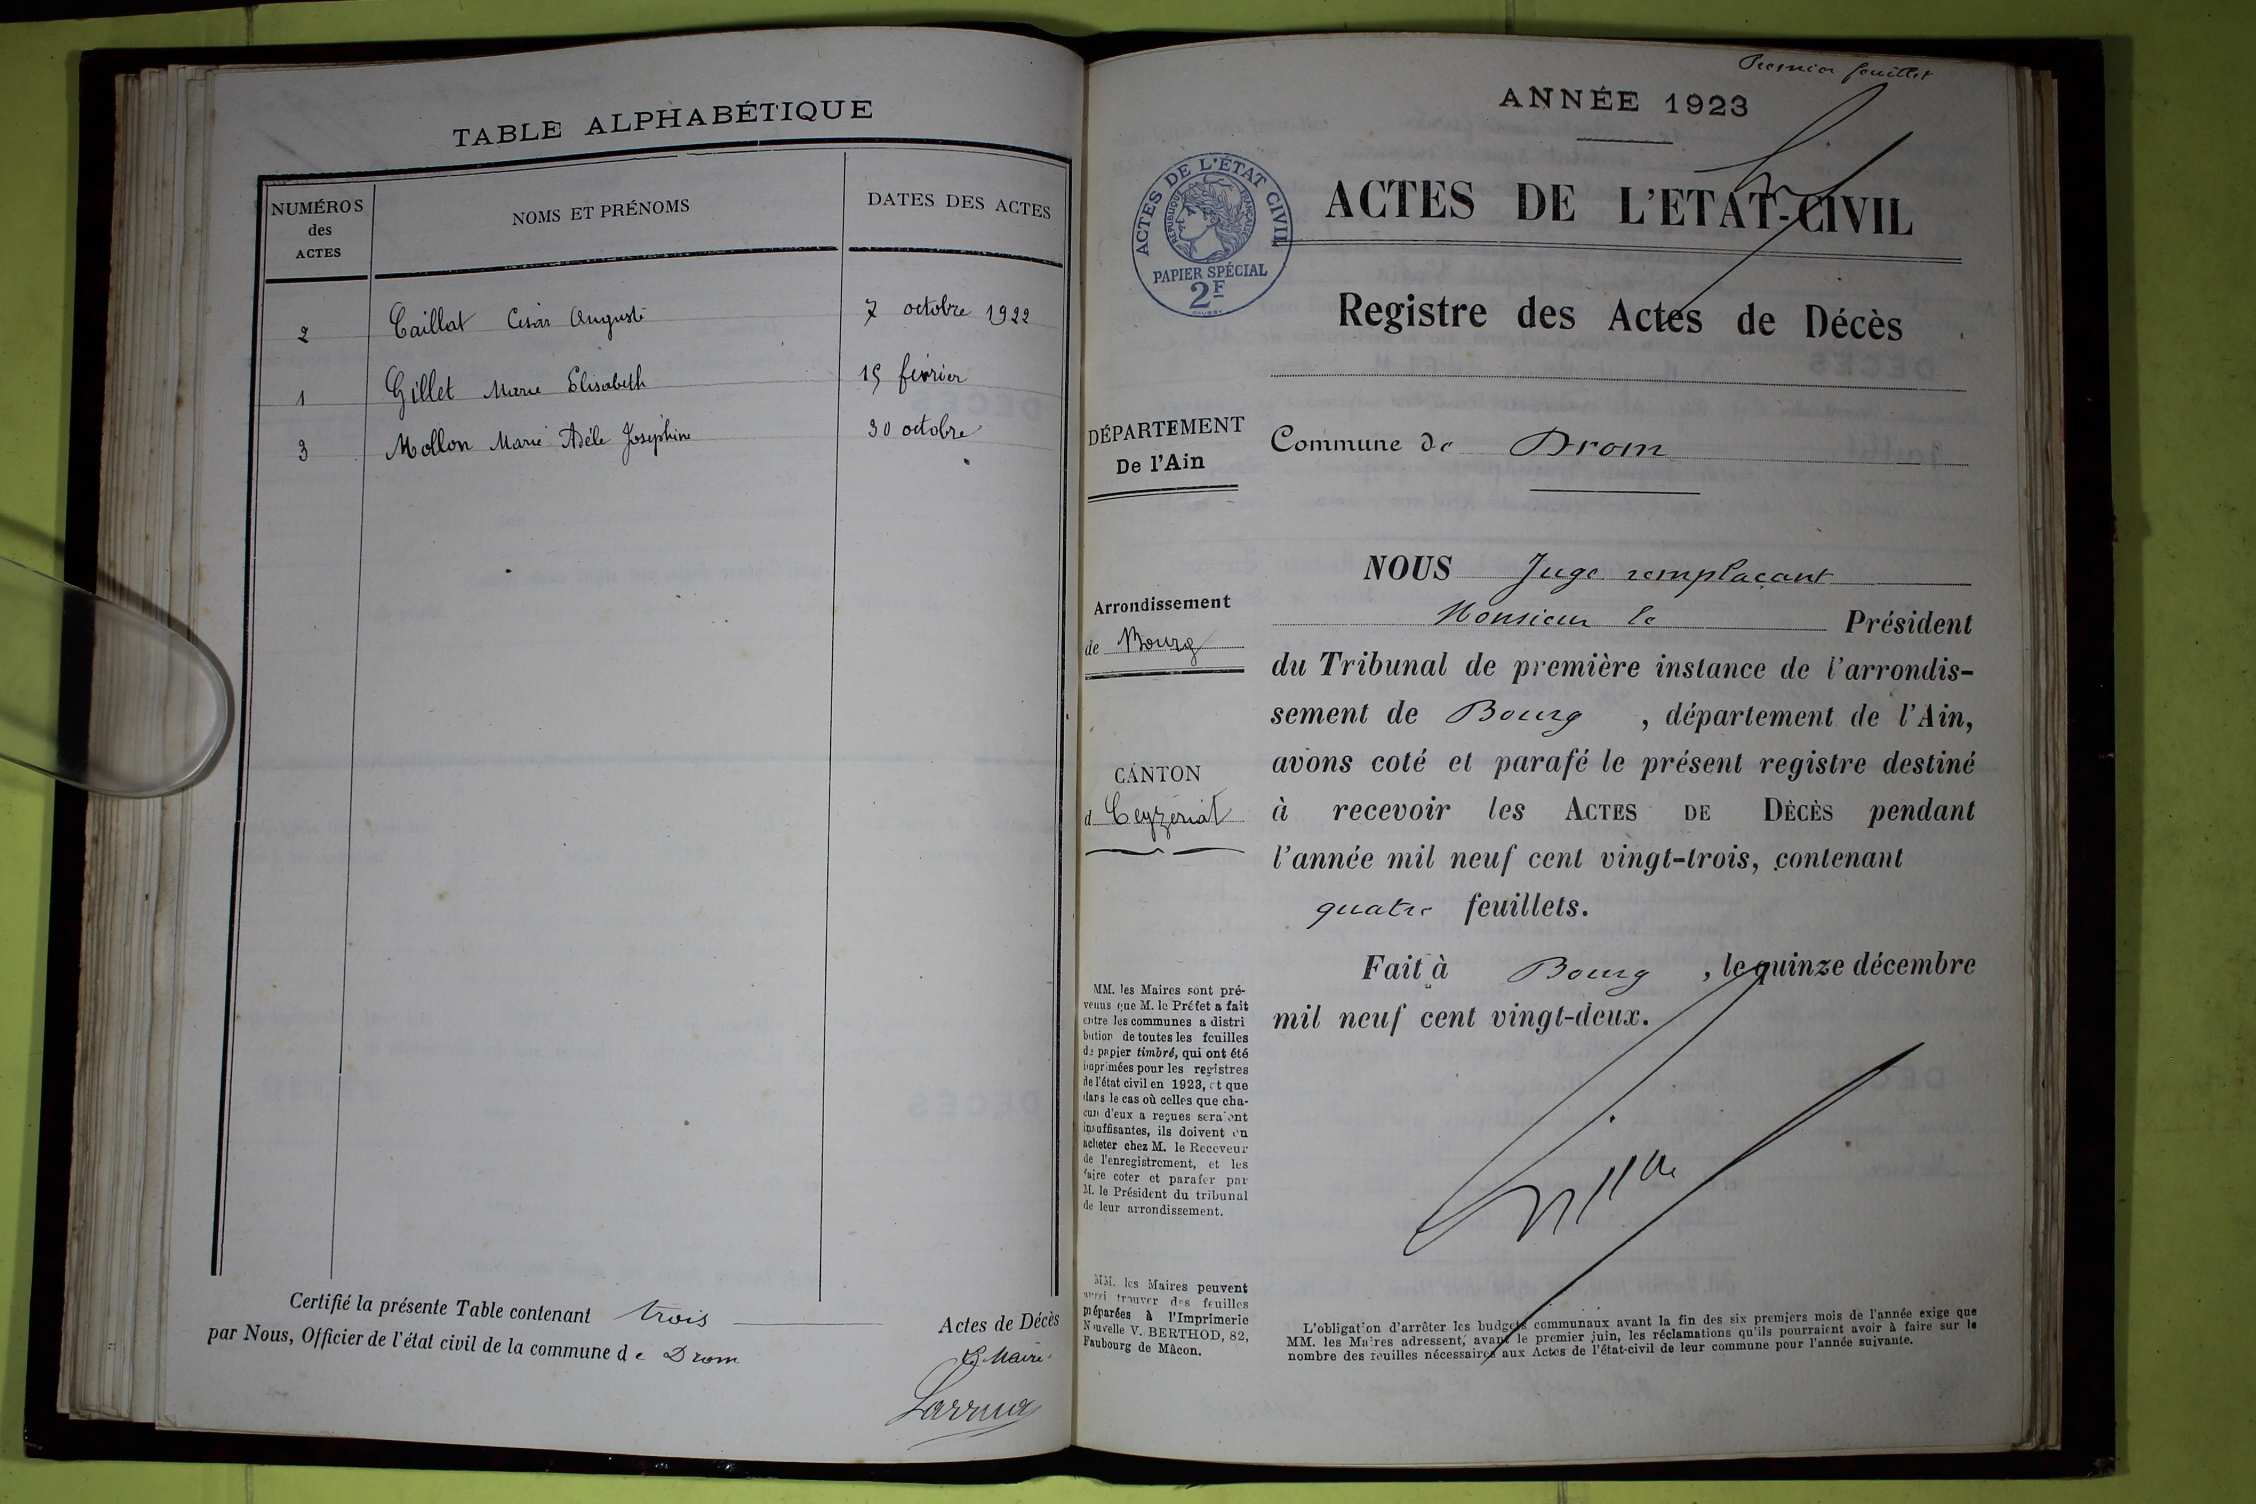 TABLE ALPHABÉTIQUE
NUMÉROS
des
ACTES
NOMS ET PRÉNOMS
DATES DES ACTES
2 Caillat César Auguste 7 octobre 1922
1 Gillet Marie Elisabeth 15 février
3 Mollon Marie Adéle Joséphine 30 octobre
Certifié la présente Table contenant trois Actes de Décès
par Nous, Officier de l'état civil de la commune de Drom
Le Maire
Premier feuillet
ANNÉE 1923
ACTES DE L'ÉTAT CIVIL
RÉPUBLIQUE FRANÇAISE
PAPIER SPÉCIAL
2F
ACTES DE L'ETAT-CIVIL
Registre des Actes de Décès
DÉPARTEMENT
De l'Ain
Commune de Drom
Arrondissement
de Bourg
CANTON
d Ceyzériat
NOUS Juge remplaçant
Monsieur le Président
du Tribunal de première instance de l'arrondis-
sement de Bourg , département de l'Ain,
avons coté et parafé le présent registre destiné
à recevoir les ACTES DE DÉCÈS pendant
l'année mil neuf cent vingt-trois, contenant
quatre feuillets.
Fait à Bourg , le quinze décembre
mil neuf cent vingt-deux.
MM. les Maires sont pré-
venus que M. le Préfet a fait
entre les communes a distri
bution de toutes les feuilles
de papier timbré, qui ont été
imprimées pour les registres
de l'état civil en 1923, et que
dans le cas où celles que cha-
cun d'eux a reçues seraient
insuffisantes, ils doivent en
acheter chez M. le Receveur
de l'enregistrement, et les
faire coter et parafer par
M. le Président du tribunal
de leur arrondissement.
MM. les Maires peuvent
aussi trouver des feuilles
préparées à l'Imprimerie
Nouvelle V. BERTHOD, 82,
Faubourg de Mâcon.
L'obligation d'arrêter les budgets communaux avant la fin des six premiers mois de l'année exige que
MM. les Maires adressent, avant le premier juin, les réclamations qu'ils pourraient avoir à faire sur le
nombre des feuilles nécessaires aux Actes de l'état-civil de leur commune pour l'année suivante.